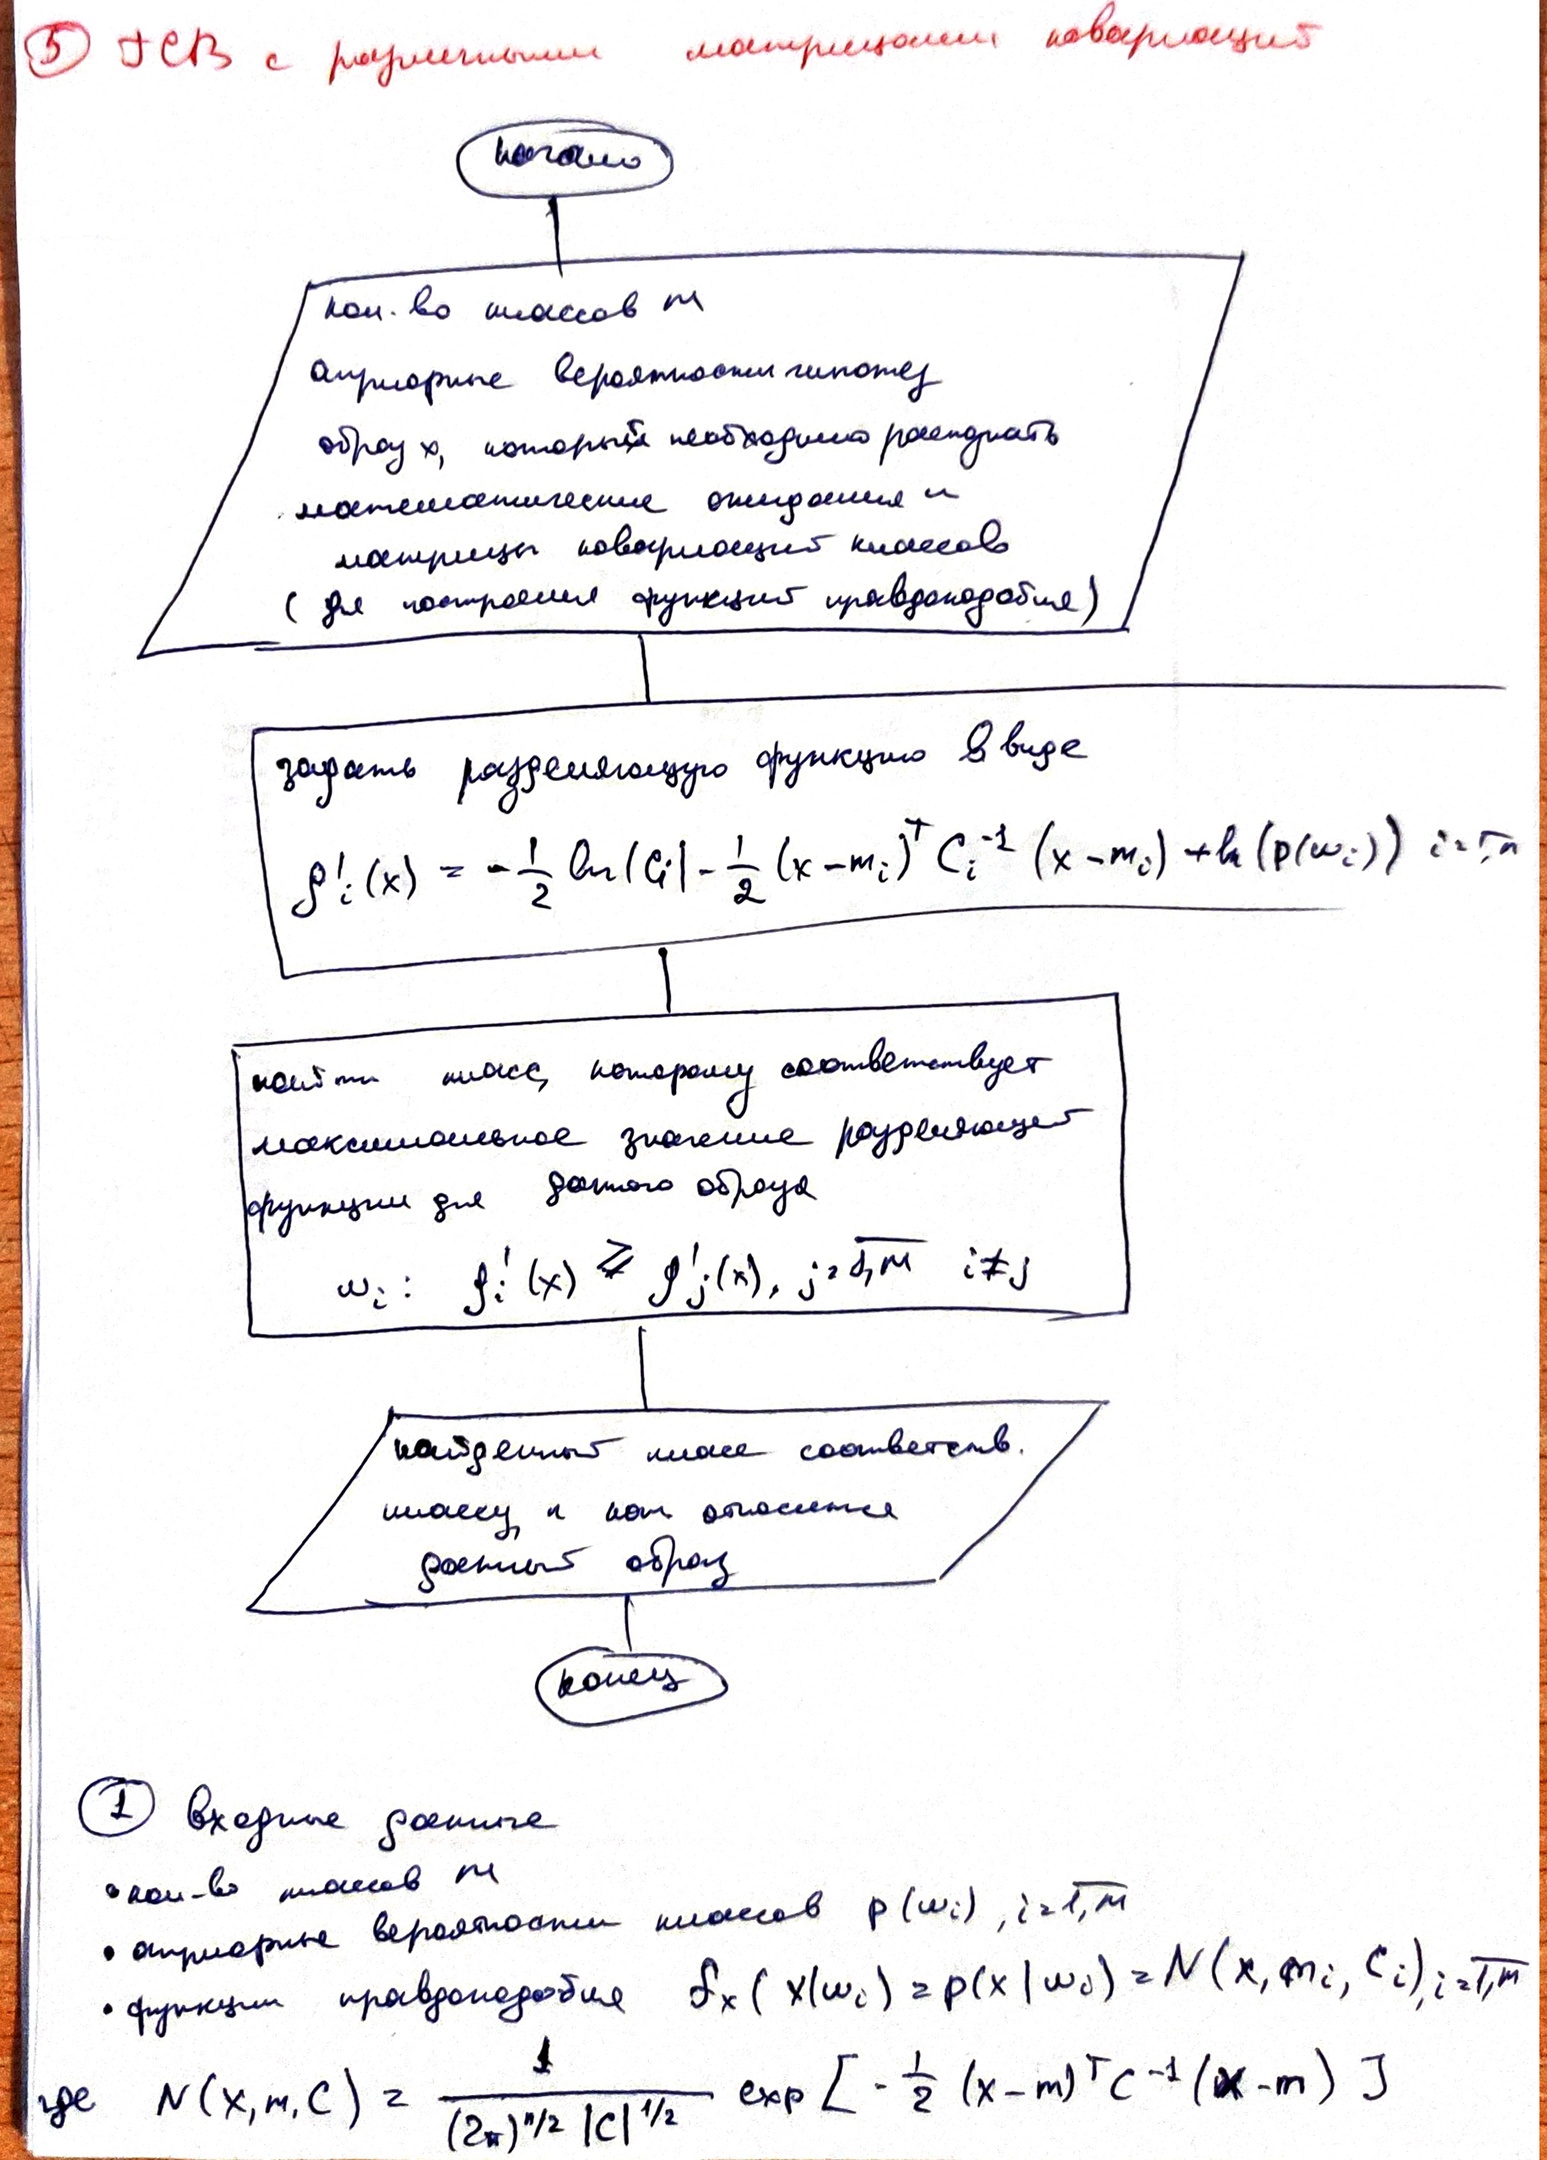 5 ГСВ с различными матрицами ковариаций
начало
кол-во классов m
априорные вероятности гипотез
образ x, который необходимо распознать
математические ожидания и
матрицы ковариаций классов
(для построения функций правдоподобия)
задать разделяющую функцию в виде
g'ᵢ(x) = -1/2 ln|Cᵢ| - 1/2 (x-mᵢ)ᵀ Cᵢ⁻¹ (x-mᵢ) + ln(p(ωᵢ)) i=1,m
найти класс, которому соответствует
максимальное значение разделяющей
функции для данного образа
ωᵢ: gᵢ'(x) ≥ g'ⱼ(x), j=1,m i≠j
найденный класс соответств.
классу, к кот. относится
данный образ
конец
1 Входные данные
• кол-во классов m
• априорные вероятности классов p(ωᵢ), i=1,m
• функции правдоподобия fₓ(x|ωᵢ) = p(x|ωᵢ) = N(x, mᵢ, Cᵢ), i=1,m
где N(x,m,C) = 1/((2π)^{n/2} |C|^{1/2}) exp[-1/2 (x-m)ᵀ C⁻¹ (x-m)]